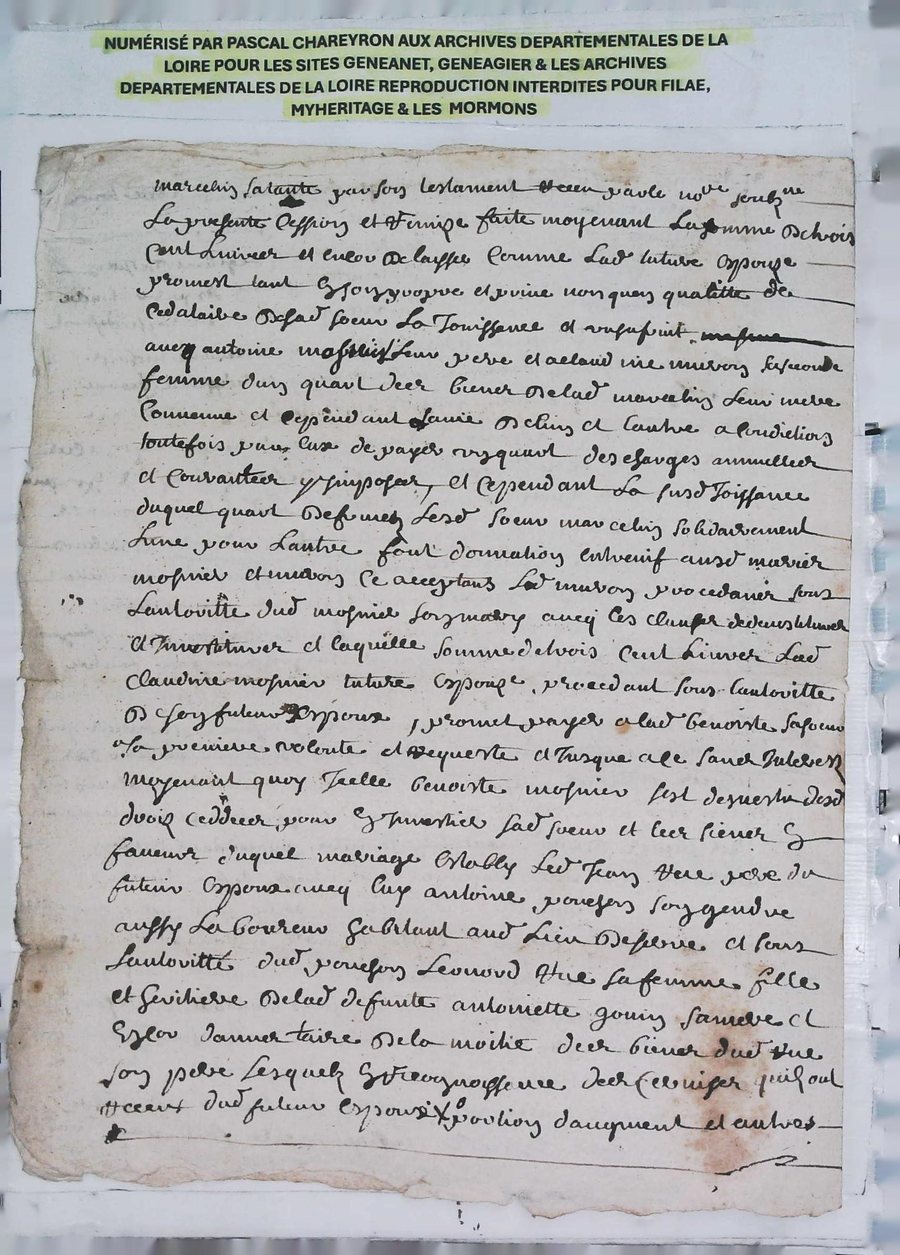 NUMÉRISÉ PAR PASCAL CHAREYRON AUX ARCHIVES DEPARTEMENTALES DE LA
LOIRE POUR LES SITES GENEANET, GENEAGIER & LES ARCHIVES
DEPARTEMENTALES DE LA LOIRE REPRODUCTION INTERDITES POUR FILAE,
MYHERITAGE & LES MORMONS
marcelin sa tante par son testament receu par le no.re soubz.ne
La presente Cession et remize faite moyenant La somme De trois
Cent Livres et encor De laisser Comme Lad future Espouze
promest tant En son propre et prive nom quen qualitte de
De sad soeur La Jouissance et usufruit
aucq antoine mosnier Leur pere et a Claudine muron sa seconde
femme dun quart des biens De lad marcelin Leur mere
Commune et cependant La vie De Lun et Lautre a Condictions
toutefois par Eux de payer un quart des charges annuelles
et Courantes y Imposees, et Cependant La susd Joissance
duquel quart Lesd soeur marcelin solidairement
Lune pour Lautre font donnation entrevif ausd mariés
mosnier et muron Ce acceptans Lad muron procedante sous
Lautoritté dud mosnier son mary aucq les clauses de devestiture
et Investiture et laquelle somme de trois Cent Livres Lad
Claudine mosnier future Espouze, procedant sous Lautoritte
De son futeur Espoux, promet payer a lad benoiste sa soeur
a sa premiere volonte et requeste et Jusque a Ce sans Interest
moyenant quoy Icelle benoiste mosnier sest desvestu desd
droits ceddees, pour En Investir sad soeur et les siens En
faveur duquel mariage Estably Led Jean hue pere du
futeur Espoux aucq luy antoine ponchon son gendre
aussy Laboureur habitant aud Lieu De et sous
Lautoritté dud ponchon Leonord hue sa femme fille
et heritiere De lad defunte antoinette gouin sa mere et
Encor De la moitie des biens dud hue
son pere Lesquels En recognoissence des services quils ont
receus dud futeur Espoux portion daugment et autres